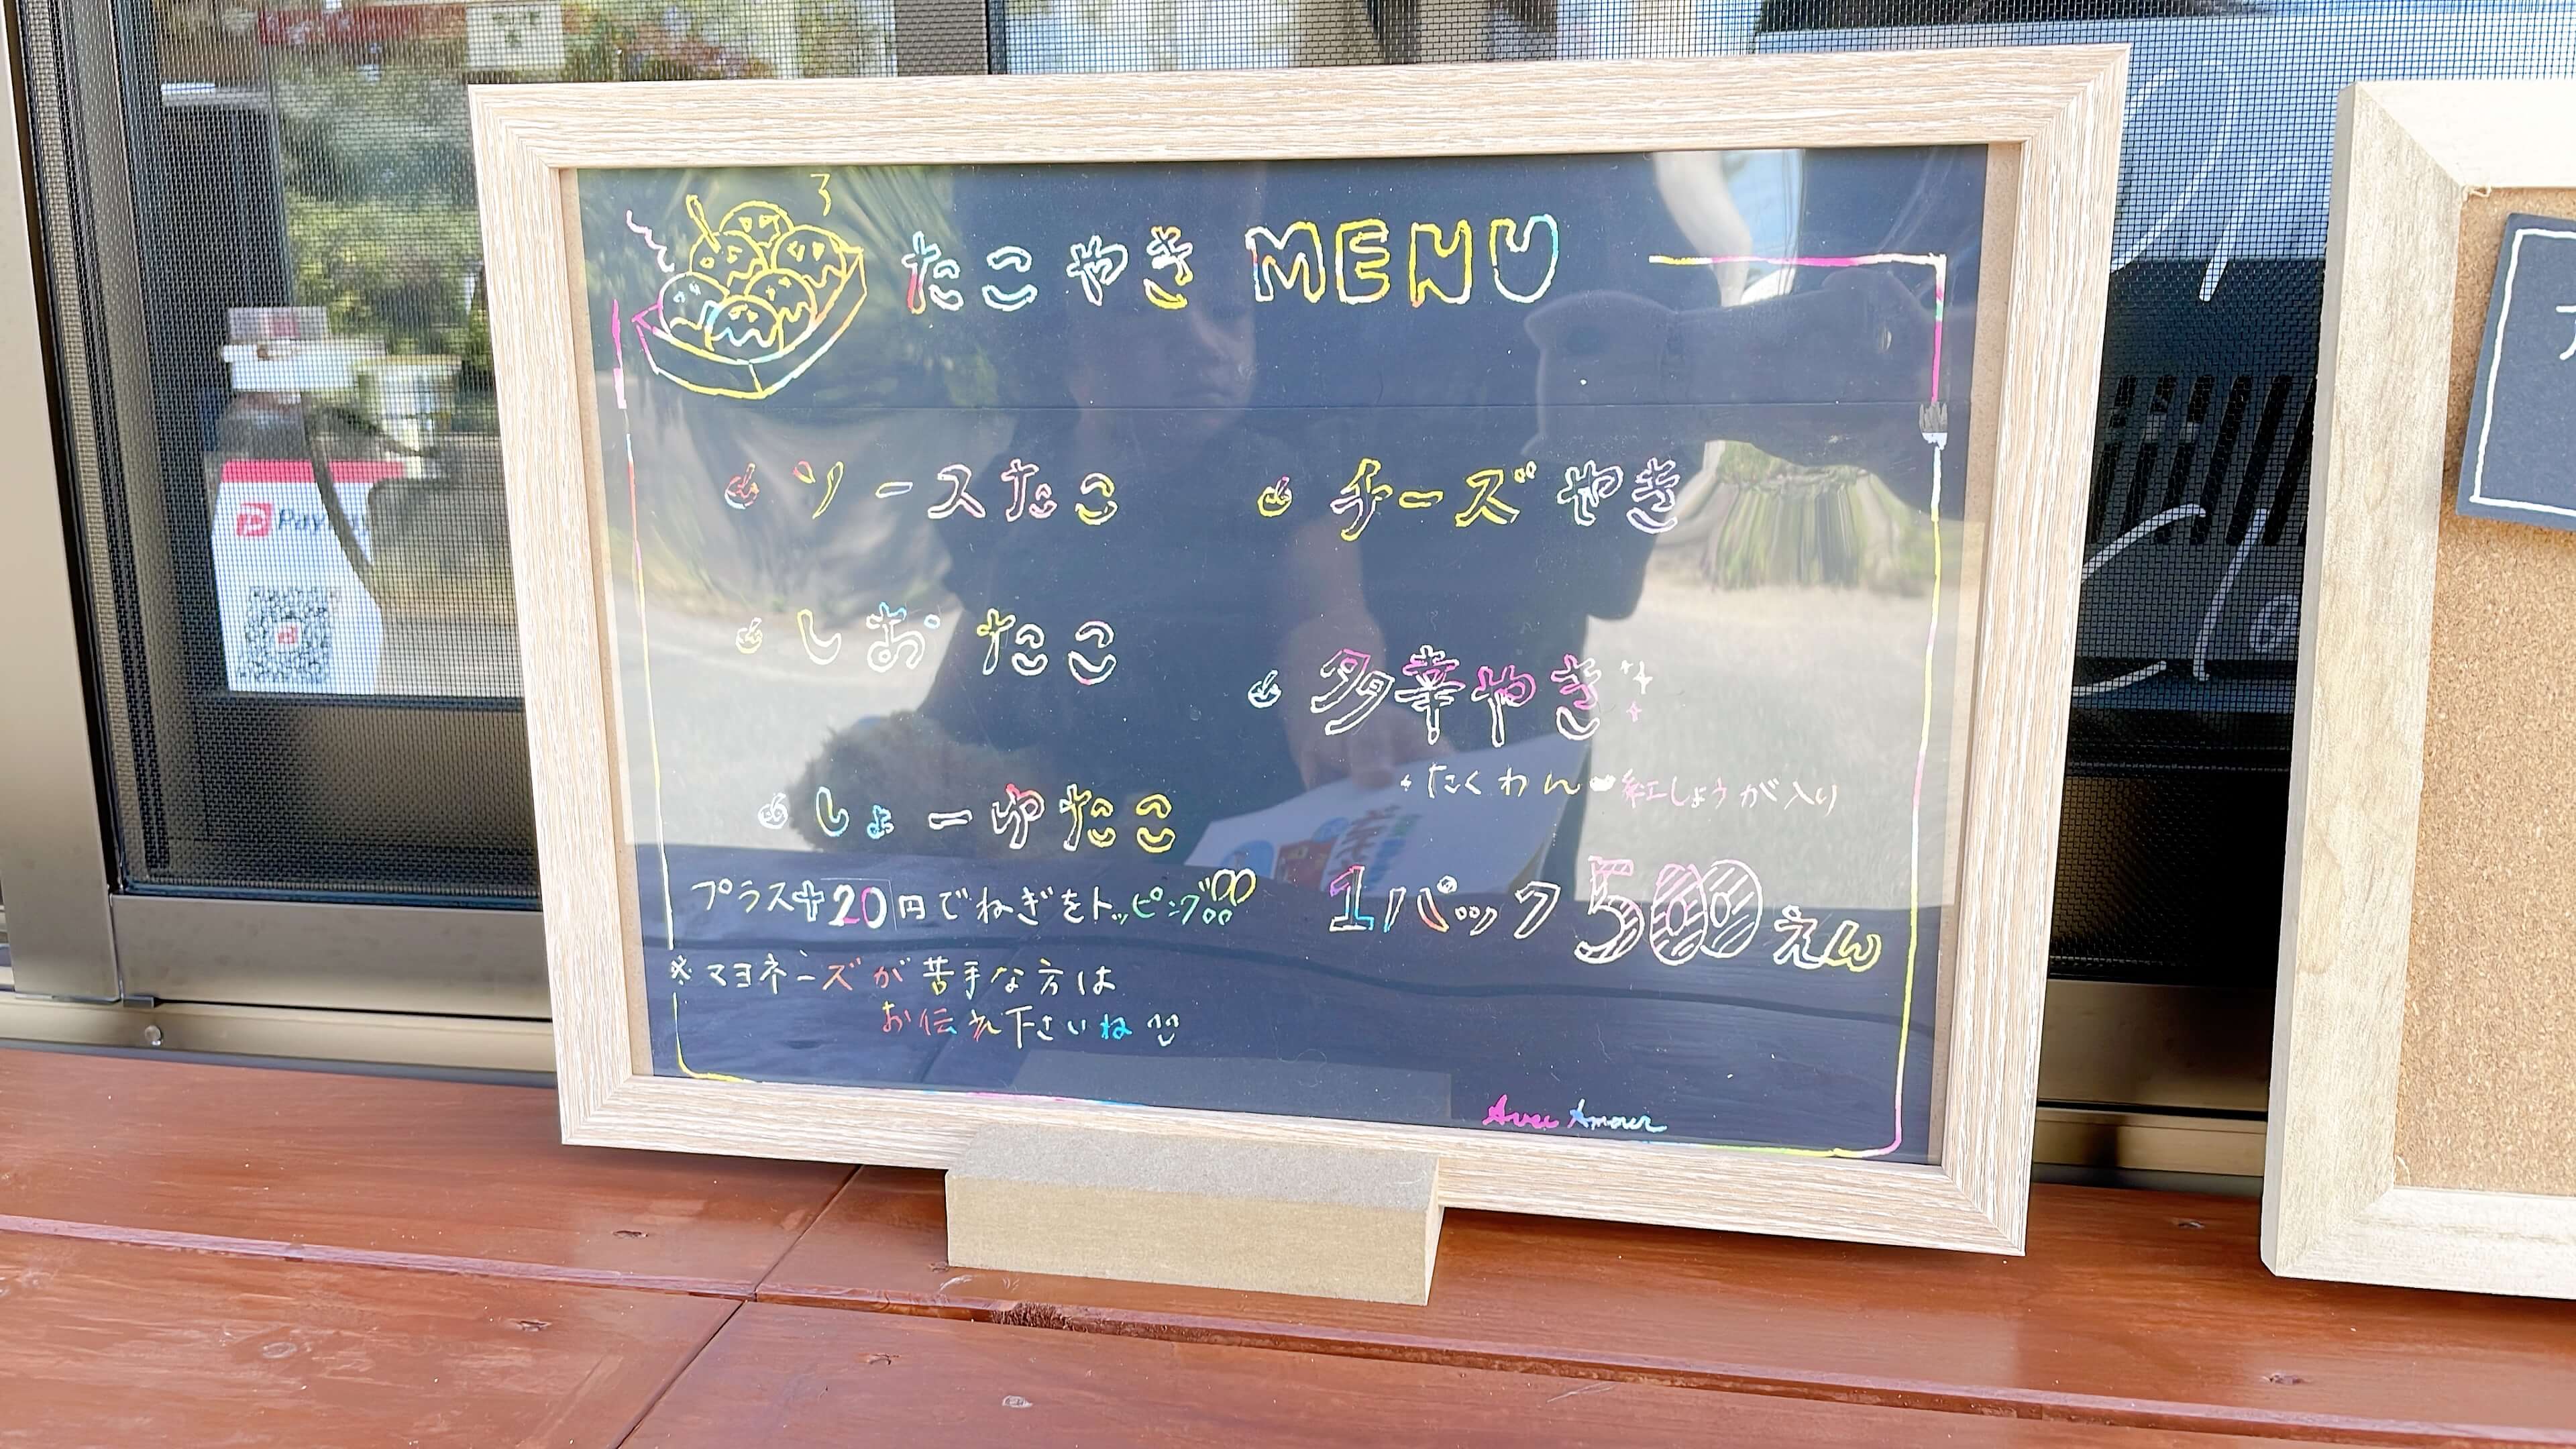 たこやき MENU
ソースたこ
しおたこ
しょーゆたこ
プラス+20円でねぎをトッピング
※マヨネーズが苦手な方は
お伝え下さいね
チーズやき
多幸やき
たくわん 紅しょうが入り
1パック500えん
Avec Amour
Pay